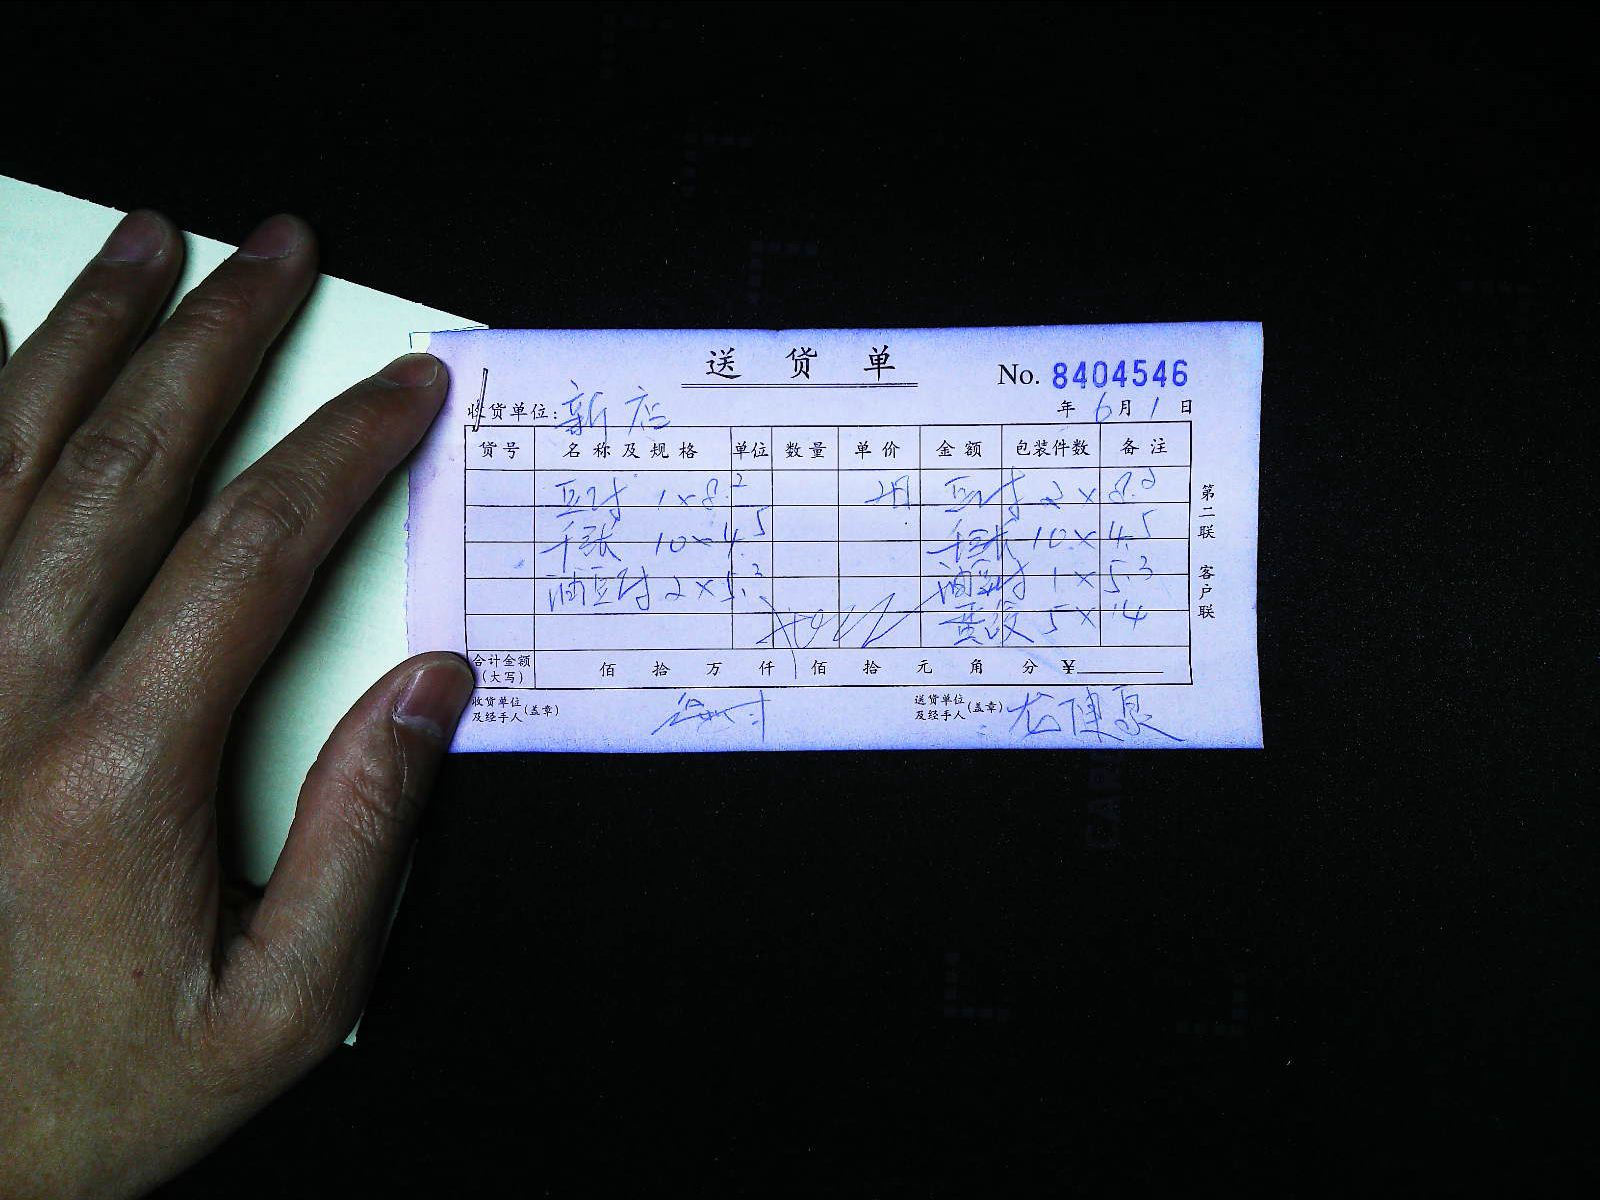 送货单
No. 8404546
收货单位: 新店
年 6月 1日
货号 名称及规格 单位 数量 单价 金额 包装件数 备注
1×8.2 2×8.2
千张 10×4.5 千张 10×4.5
油豆 2×5.3 油豆 1×5.3
5×14
合计金额(大写) 佰 拾 万 仟 佰 拾 元 角 分 ¥
收货单位及经手人(盖章)
送货单位及经手人(盖章)
第二联 客户联